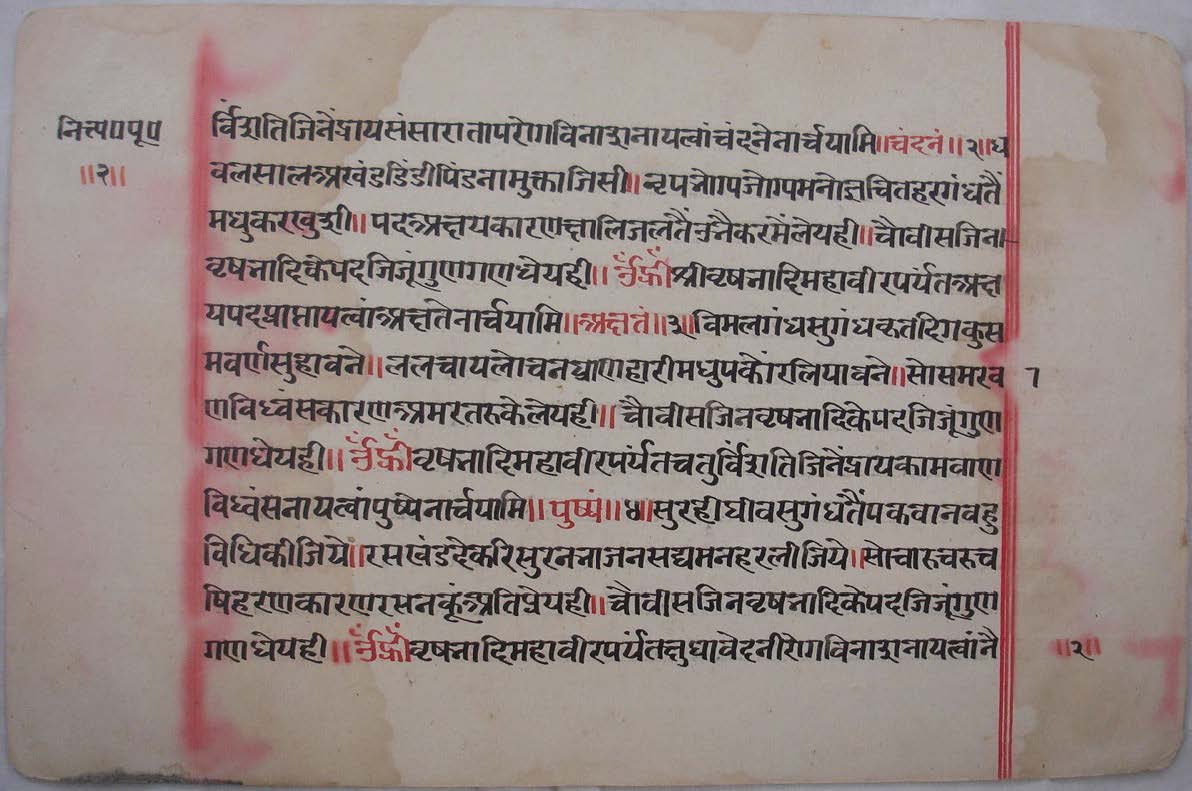 नित्य०पू०
॥२॥
र्विंशतिजिनेंद्रायसंसारातापरोगविनाशनायत्वांचंदनेनार्चयामि॥चंदनं॥२॥ध
वलसालअखंडडिंडीपिंडनामुक्ताजिसी॥नृपभोगपजोगमनोज्ञचितहरगंधतैं
मधुकरखुशी॥पदअक्षयकारणक्षालिजलतैंउभैकरमेंलेयही॥चौवीसजिना
वृषभादिकेपदजिजूंगुणगणधेयही॥ॐह्रीँश्रीवृषभादिमहावीरपर्यंतअक्ष
यपदप्राप्तायत्वांअक्षतेनार्चयामि॥अक्षतं॥३॥विमलगंधसुगंधकृतदिगकुस
मवर्णसुहावने॥ललचायलोचनघ्राणहारीमधुपकोंरलियावने॥सोसमरव
णविध्वंसकारणअमरतरुकेलेयही॥चौवीसजिनवृषभादिकेपदजिजूंगुण
गणधेयही॥ॐह्रीँवृषभादिमहावीरपर्यंतचतुर्विंशतिजिनेंद्रायकामवाण
विध्वंसनायत्वांपुष्पेनार्चयामि॥पुष्पं॥४॥सुरहीघीवसुगंधतैंपकवानवहु
विधिकीजिये॥रसखंडदेकरिसुरभभाजनसद्यमनहरलीजिये॥सोचारुचरुच
षिहरणकारणरसनकूंअतिप्रेयही॥चौवीसजिनवृषभादिकेपदजिजूंगुण
गणधेयही॥ॐह्रीँवृषभादिमहावीरपर्यंतक्षुधावेदनीरोगविनाशनायत्वांनै
॥२॥